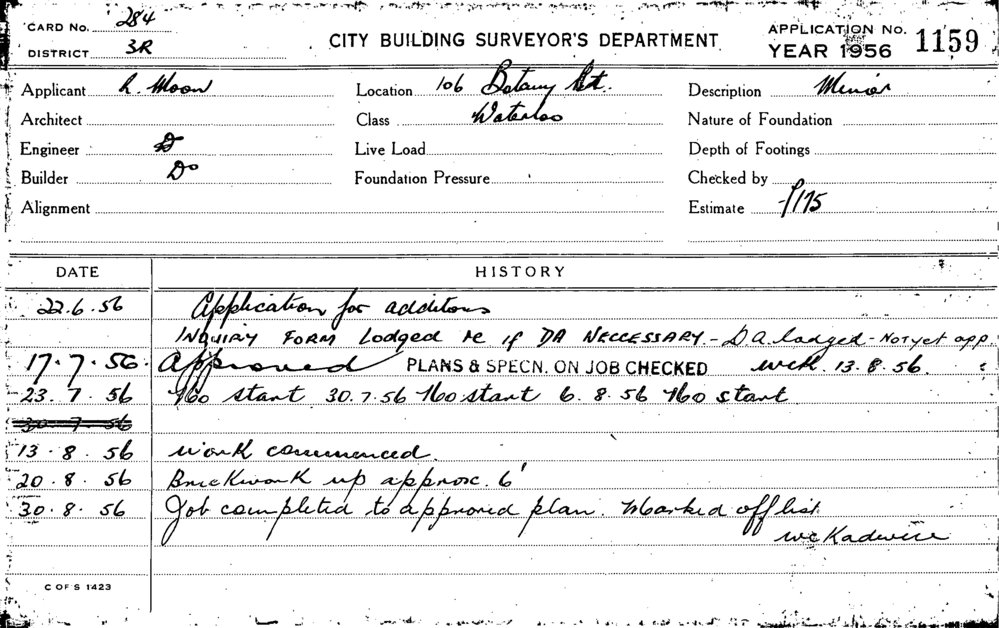 CARD No. 284
DISTRICT 3R
CITY BUILDING SURVEYOR'S DEPARTMENT
APPLICATION No. 1159
YEAR 1956
Applicant R. Moon Location 106 Botany St. Description Minor
Architect Class Waterloo Nature of Foundation
Engineer D Live Load Depth of Footings
Builder Do Foundation Pressure Checked by
Alignment Estimate £175
DATE HISTORY
22.6.56 Application for additons
INQUIRY FORM Lodged re if DA NECCESSARY - DA. lodged - Not yet app.
17.7.56. Approved PLANS & SPECN. ON JOB CHECKED wck. 13.8.56.
23.7.56 No start 30.7.56 No start 6.8.56 No start
30.7.56
13.8.56 work commenced.
20.8.56 Brickwork up approx. 6'
30.8.56 Job completed to approved plan. Marked off list.
C OF S 1423